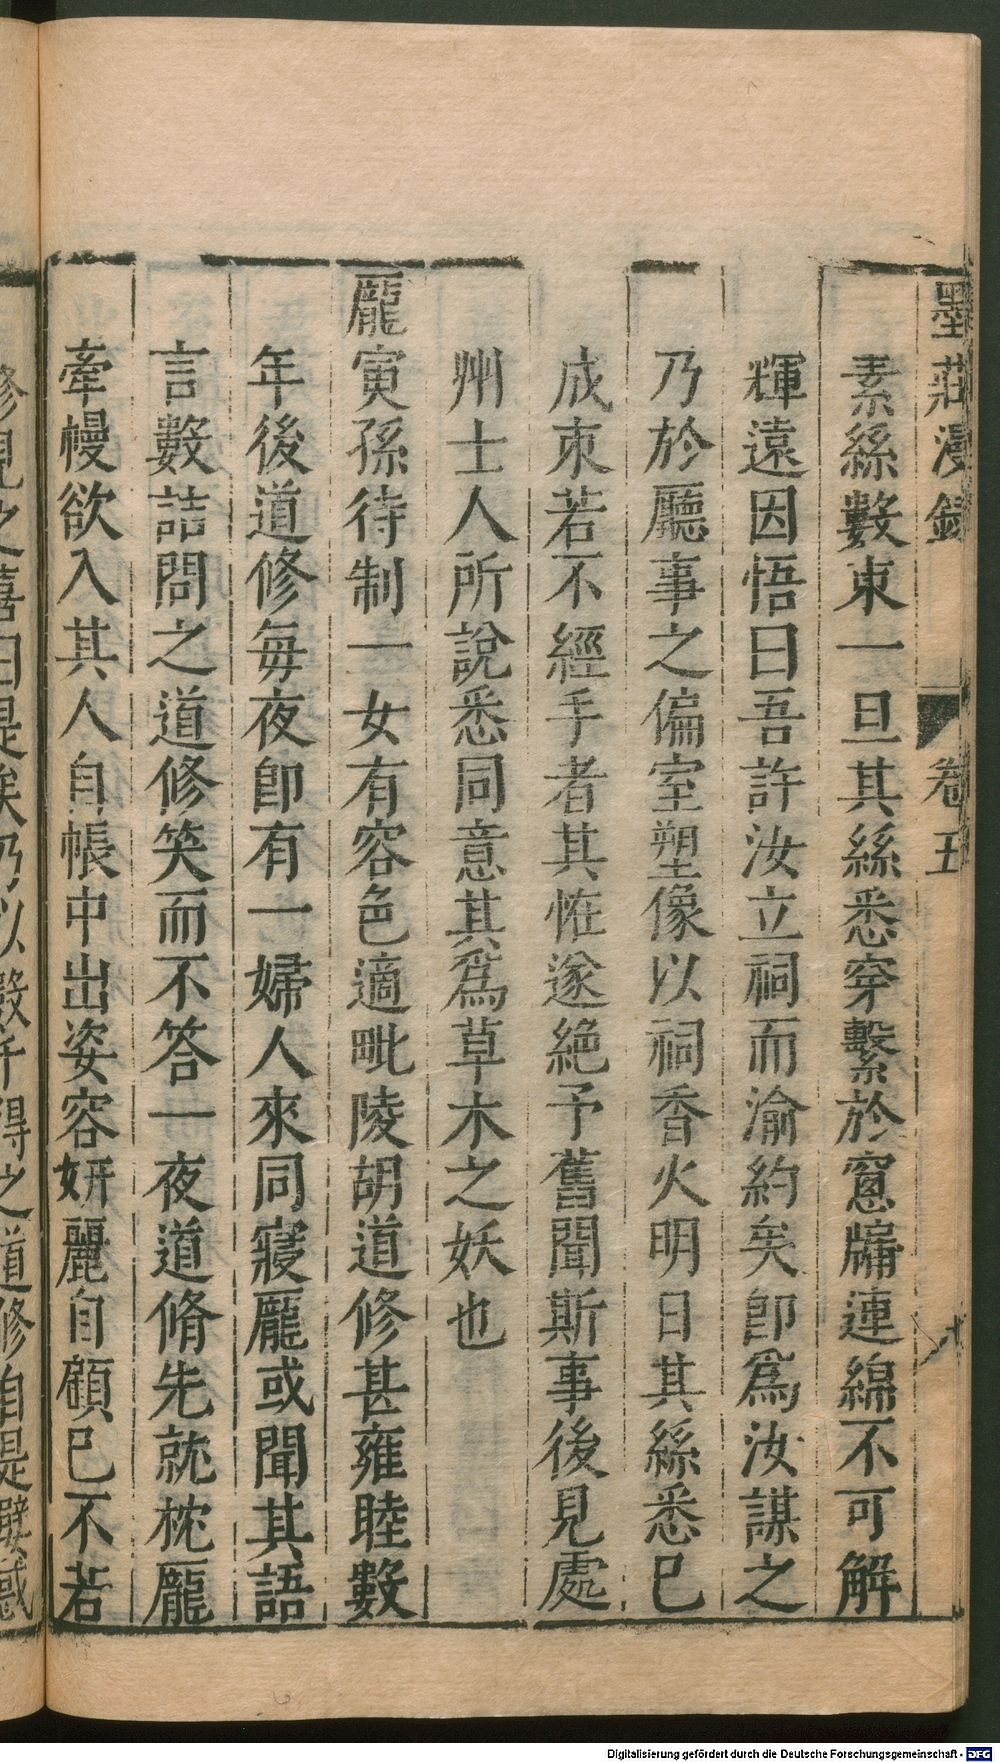 墨莊漫錄 卷五
素絲數束一旦其絲悉穿繫於窻牖連綿不可解
輝遠因悟曰吾許汝立祠而渝約矣卽爲汝謀之
乃於廳事之偏室塑像以祠香火明日其絲悉已
成束若不經手者其恠遂絶予舊聞斯事後見處
州士人所說悉同意其爲草木之妖也
龐寅孫待制一女有容色適毗陵胡道修甚雍睦數
年後道修每夜卽有一婦人來同寢龐或聞其語
言數詰問之道修笑而不答一夜道脩先就枕龐
牽幔欲入其人自帳中出姿容妍麗自顧已不若
修見之喜曰是 乃以 千得之道修自是嬖惑
Digitalisierung gefördert durch die Deutsche Forschungsgemeinschaft - DFG